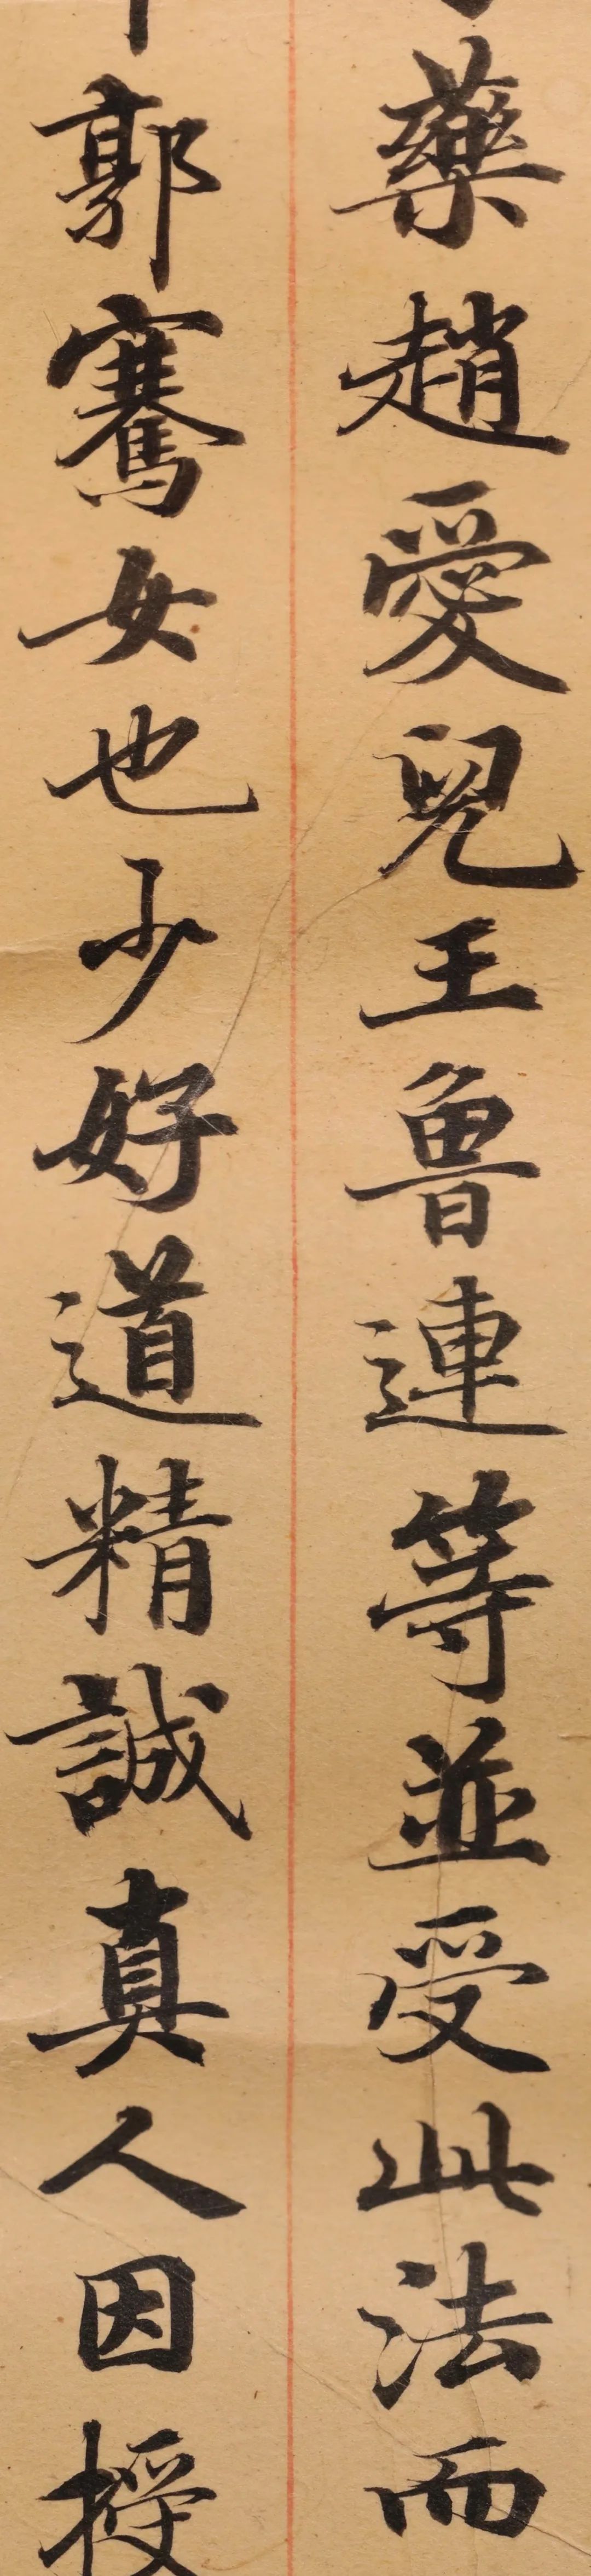 藥趙愛兒王魯連等並受此法而
郭騫女也少好道精誠真人因授